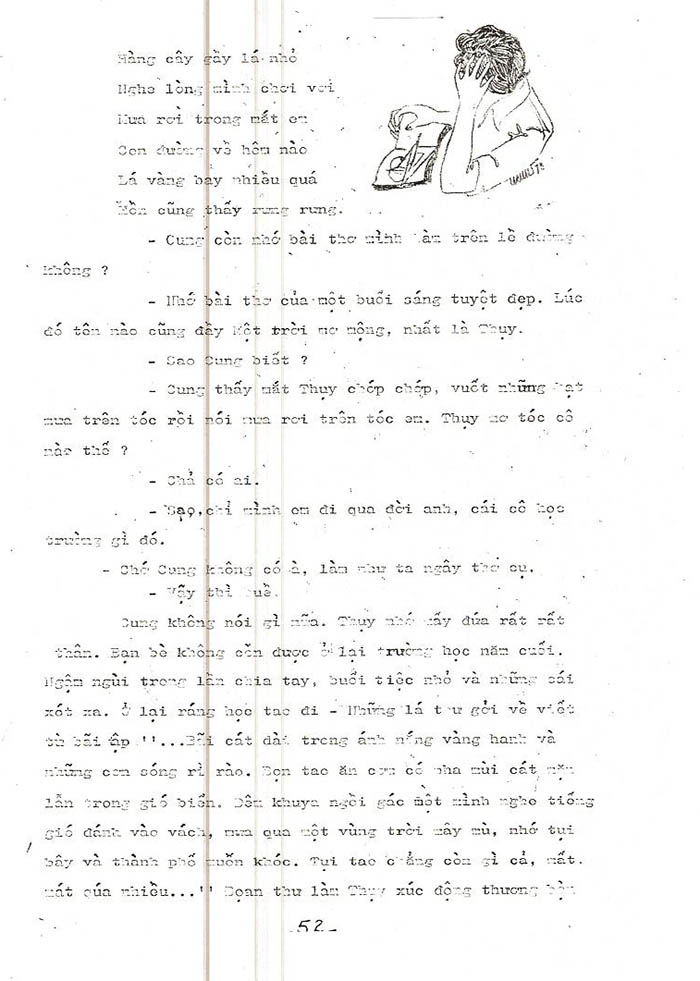 Hàng cây gầy lá nhỏ
Nghe lòng mình chơi vơi
Mưa rơi trong mắt em
Con đường về hôm nào
Lá vàng bay nhiều quá
Hồn cũng thấy rưng rưng.
- Cung còn nhớ bài thơ mình làm trên lề đường
không ?
- Nhớ bài thơ của một buổi sáng tuyệt đẹp. Lúc
đó tên nào cũng đầy một trời mơ mộng, nhất là Thụy.
- Sao Cung biết ?
- Cung thấy mắt Thụy chớp chớp, vuốt những hạt
mưa trên tóc rồi nói mưa rơi trên tóc em. Thụy mơ tóc cô
nào thế ?
- Chả có ai.
- Sạo, chỉ mình em đi qua đời anh, cái cô học
trường gì đó.
- Chớ Cung không có à, làm như ta ngây thơ cụ.
- Vậy thì huề.
Cung không nói gì nữa. Thụy nhớ mấy đứa rất rất
thân. Bạn bè không còn được ở lại trường học năm cuối.
Ngậm ngùi trong lần chia tay, buổi tiệc nhỏ và những cái
xót xa. Ở lại ráng học tao đi - Những lá thư gởi về viết
từ bãi tập "...Bãi cát dài trong ánh nắng vàng hanh và
những con sóng rì rào. Bọn tao ăn cơm có pha mùi cát, mặn
lẫn trong gió biển. Đêm khuya ngồi gác một mình nghe tiếng
gió đánh vào vách, mưa qua một vùng trời mây mù, nhớ tụi
bây và thành phố muốn khóc. Tụi tao chẳng còn gì cả, mất.
mát qúa nhiều..." Đoạn thư làm Thụy xúc động thương bạn
52